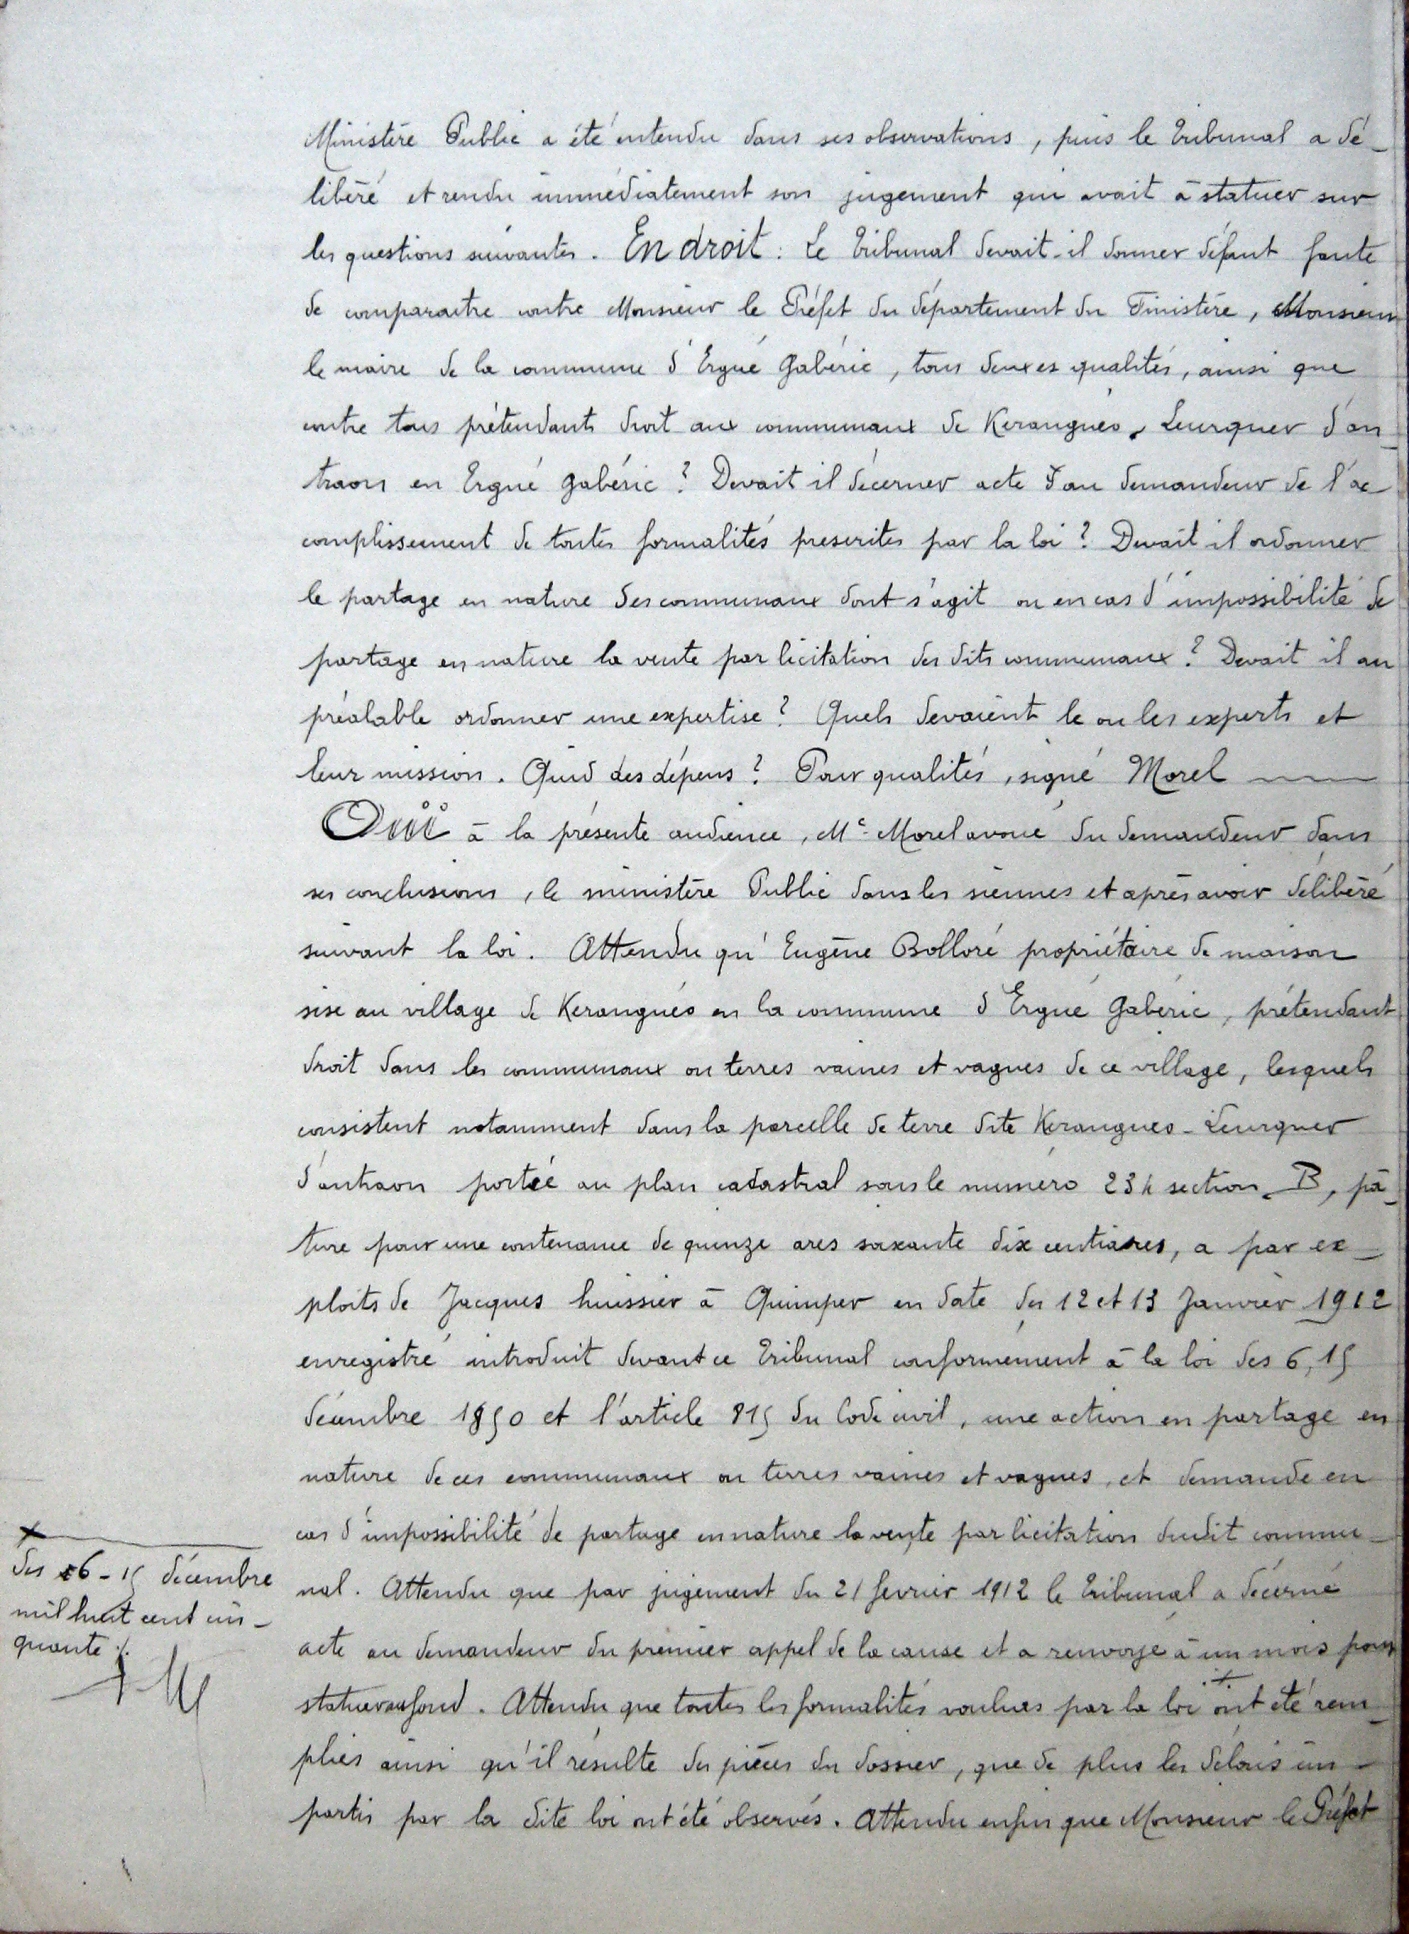 Ministère Public a été entendu dans ses observations, puis le Tribunal a dé-
libéré et rendu immédiatement son jugement qui avait à statuer sur
les questions suivantes. En droit : Le Tribunal devait-il donner défaut faute
de comparaitre contre Monsieur le Préfet du département du Finistère, Monsieur
le maire de la commune d'Ergué Gabéric, tous deux es qualités, ainsi que
contre tous prétendants droit aux communaux de Kerangueo, Leurquer d'an-
traon en Ergué Gabéric ? Devait il décerner acte au demandeur de l'ac-
complissement de toutes formalités prescrites par la loi ? Devait il ordonner
le partage en nature des communaux dont s'agit ou en cas d'impossibilité de
partage en nature la vente par licitation des dits communaux ? Devait il au
préalable ordonner une expertise ? Quels devaient le ou les experts et
leur mission. Quid des dépens ? Pour qualités, signé Morel
Ouï à la présente audience, Me Morel avoué du demandeur dans
ses conclusions, le ministère Public dans les siennes et après avoir délibéré
suivant la loi. Attendu qu'Eugène Bolloré propriétaire de maison
sise au village de Kerangueo en la commune d'Ergué Gabéric, prétendant
droit dans les communaux ou terres vaines et vagues de ce village, lesquels
consistent notamment dans la parcelle de terre dite Kerangueo - Leurquer
d'antraon portée au plan cadastral sous le numéro 234 section B, pâ-
ture pour une contenance de quinze ares soixante dix centiares, a par ex-
ploits de Jacques huissier à Quimper en date des 12 et 13 Janvier 1912
enregistré introduit devant ce Tribunal conformément à la loi des 6, 15
décembre 1850 et l'article 815 du Code civil, une action en partage en
nature de ces communaux ou terres vaines et vagues, et demande en
cas d'impossibilité de partage en nature la vente par licitation dudit commu-
nal. Attendu que par jugement du 21 février 1912 le Tribunal a décerné
acte au demandeur du premier appel de la cause et a renvoyé à un mois pour
statuer au fond. Attendu que toutes les formalités voulues par la loi ont été rem-
plies ainsi qu'il résulte des pièces du dossier, que de plus les délais im-
partis par la dite loi ont été observés. Attendu enfin que Monsieur le Préfet
des 6 - 15 décembre
mil huit cent cin-
quante ./.